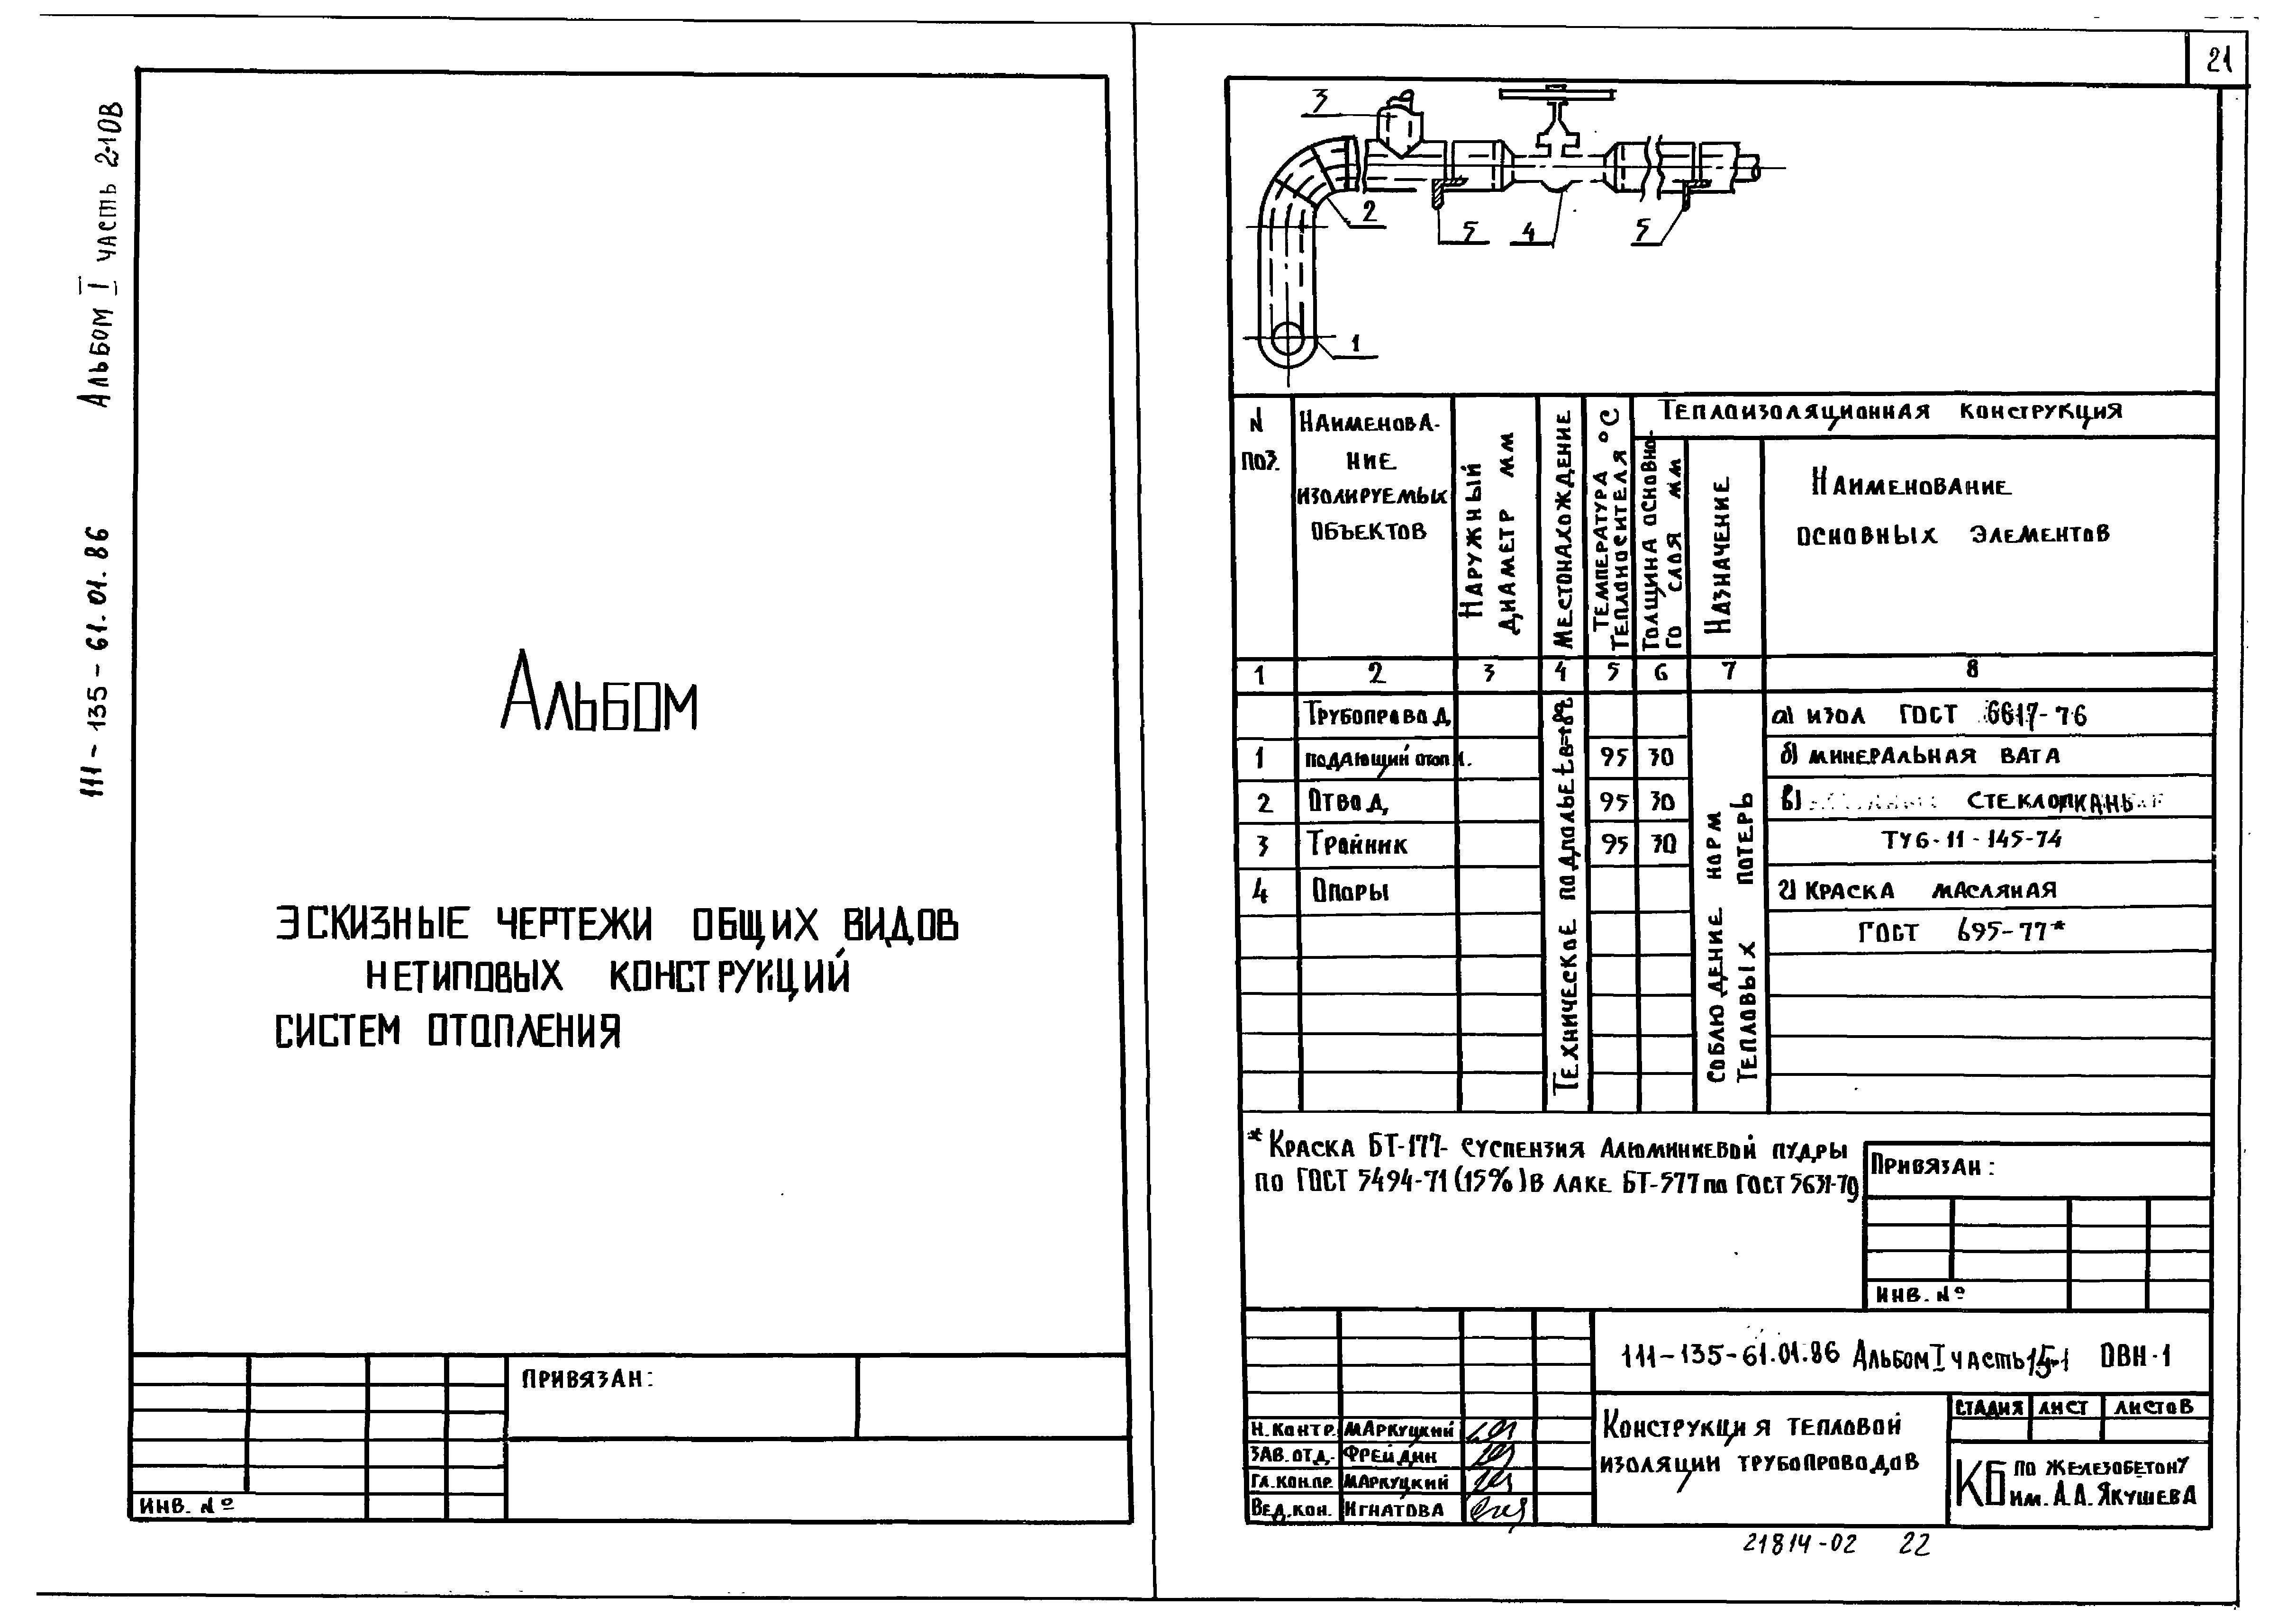 Альбом I часть 2-10В
111-135-61.01.86
Альбом
ЭСКИЗНЫЕ ЧЕРТЕЖИ ОБЩИХ ВИДОВ
НЕТИПОВЫХ КОНСТРУКЦИЙ
СИСТЕМ ОТОПЛЕНИЯ
ПРИВЯЗАН:
ИНВ. №
21
3
2
5
4
5
1
N ПОЗ.
НАИМЕНОВА-
НИЕ
ИЗОЛИРУЕМЫХ
ОБЪЕКТОВ
НАРУЖНЫЙ
ДИАМЕТР ММ
МЕСТОНАХОЖДЕНИЕ
ТЕМПЕРАТУРА
ТЕПЛОНОСИТЕЛЯ °С
ТЕПЛОИЗОЛЯЦИОННАЯ КОНСТРУКЦИЯ
ТОЛЩИНА ОСНОВНО-
ГО СЛОЯ ММ
НАЗНАЧЕНИЕ
НАИМЕНОВАНИЕ
ОСНОВНЫХ ЭЛЕМЕНТОВ
1 2 3 4 5 6 7 8
ТРУБОПРОВОД
а) ИЗОЛ ГОСТ 6617-76
1 ПОДАЮЩИЙ ОТОПЛ. 95 30 б) МИНЕРАЛЬНАЯ ВАТА
2 ОТВОД 95 30 в) СТЕКЛОТКАНЬ
3 ТРОЙНИК 95 30 ТУ6-11-145-74
4 ОПОРЫ г) КРАСКА МАСЛЯНАЯ
ГОСТ 695-77*
ТЕХНИЧЕСКОЕ ПОДПОЛЬЕ
СОБЛЮДЕНИЕ НОРМ
ТЕПЛОВЫХ ПОТЕРЬ
* КРАСКА БТ-177- СУСПЕНЗИЯ АЛЮМИНИЕВОЙ ПУДРЫ
ПО ГОСТ 5494-71 (15%) В ЛАКЕ БТ-577 ПО ГОСТ 5631-70
ПРИВЯЗАН:
ИНВ. №
111-135-61.01.86 АЛЬБОМ I ЧАСТЬ 15-1 ОВН-1
Н.КОНТР. МАРКУЦКИЙ
ЗАВ.ОТД. ФРЕЙДИН
ГЛ.КОН.ПР. МАРКУЦКИЙ
ВЕД.КОН. ИГНАТОВА
КОНСТРУКЦИЯ ТЕПЛОВОЙ
ИЗОЛЯЦИИ ТРУБОПРОВОДОВ
СТАДИЯ ЛИСТ ЛИСТОВ
КБ ПО ЖЕЛЕЗОБЕТОНУ
ИМ. А.А. ЯКУШЕВА
21814-02 22